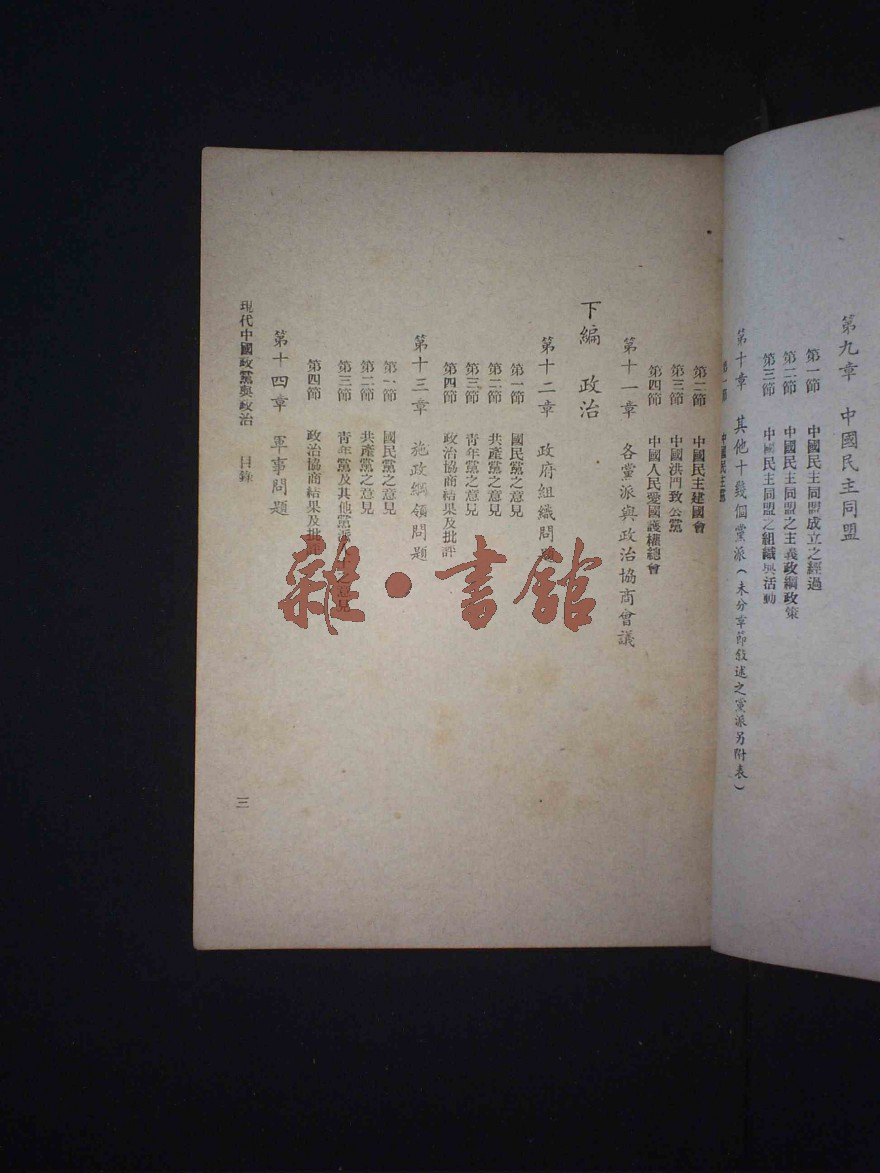 第九章 中國民主同盟
第一節 中國民主同盟成立之經過
第二節 中國民主同盟之主義政綱政策
第三節 中國民主同盟之組織與活動
第十章 其他十幾個黨派(未分章節敍述之黨派另附表)
第一節 中國民主黨
第二節 中國民主建國會
第三節 中國洪門致公黨
第四節 中國人民愛國護權總會
第十一章 各黨派與政治協商會議
下編 政治
第十二章 政府組織問題
第一節 國民黨之意見
第二節 共產黨之意見
第三節 青年黨之意見
第四節 政治協商結果及批評
第十三章 施政綱領問題
第一節 國民黨之意見
第二節 共產黨之意見
第三節 青年黨及其他黨派 之意見
第四節 政治協商結果及批評
第十四章 軍事問題
現代中國政黨與政治 目錄
三
雜•書館